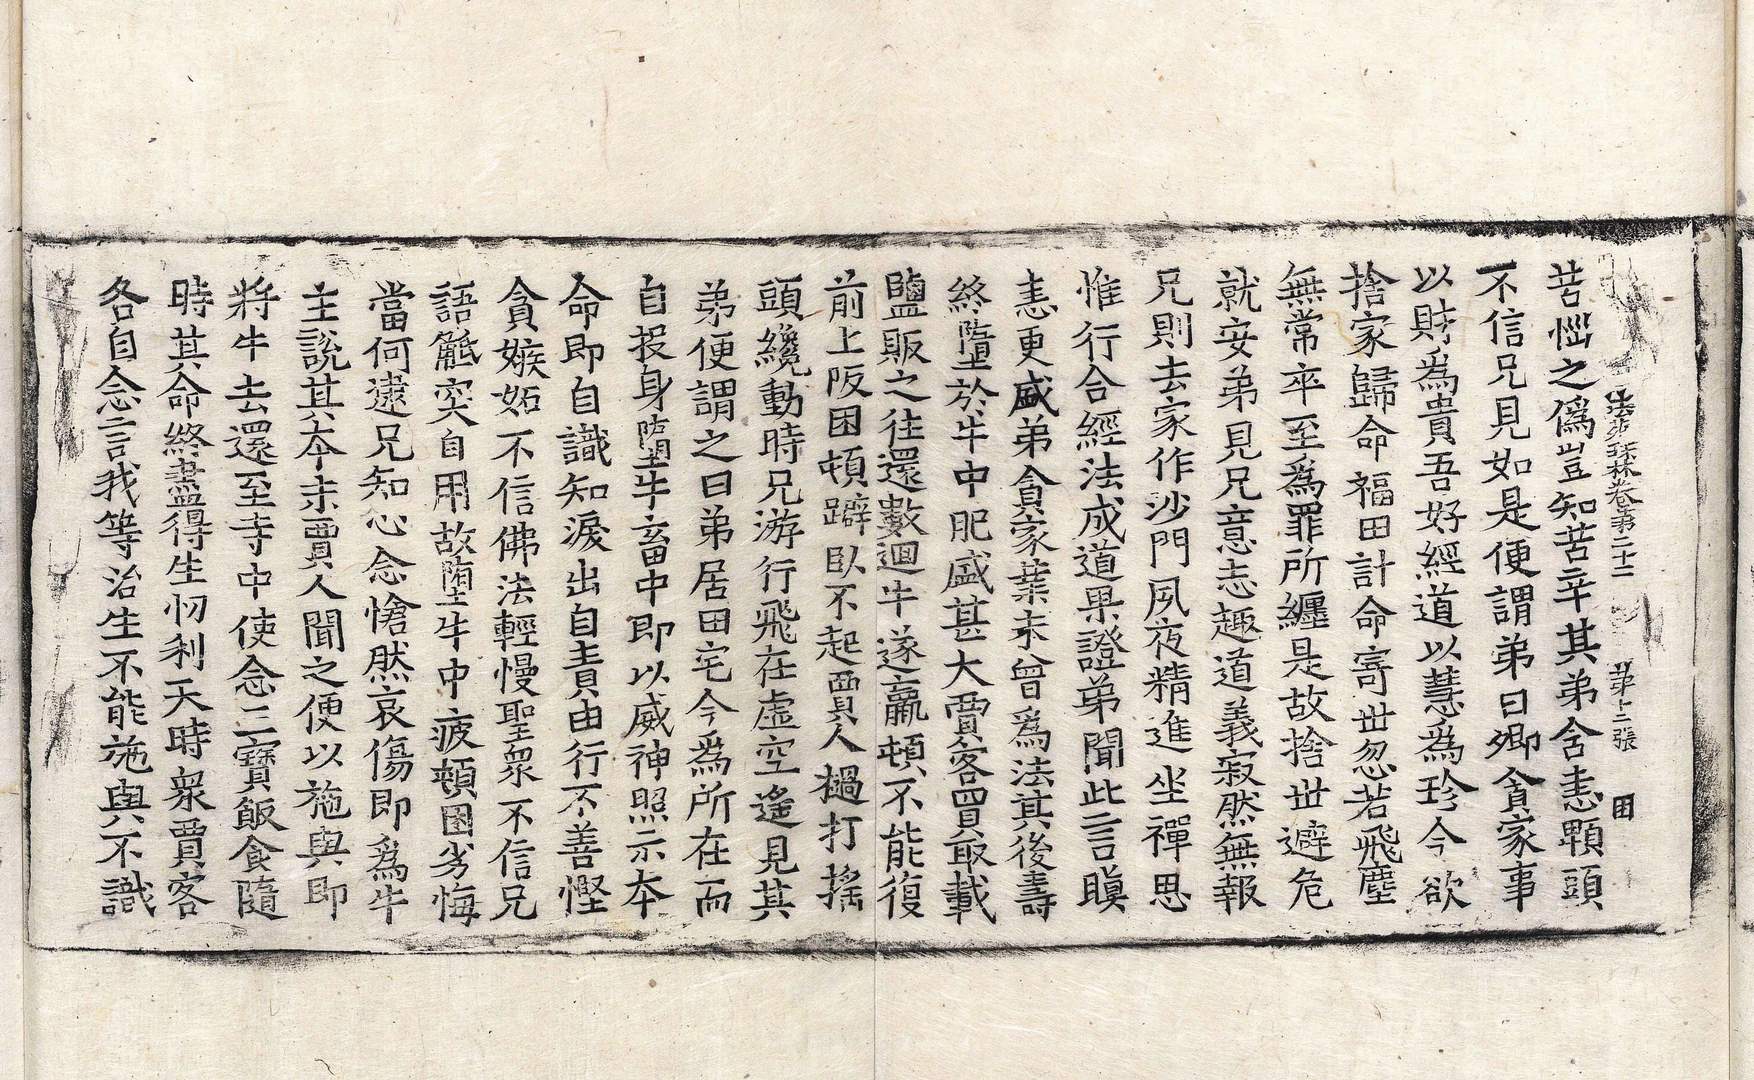 法苑珠林卷第二十二　第十二張　困
苦惱之僞豈知苦辛其弟含恚顆頭
不信兄見如是便謂弟曰卿貪家事
以財爲貴吾好經道以慧爲珍今欲
捨家歸命福田計命寄世忽若飛塵
無常卒至爲罪所纏是故捨世避危
就安弟見兄意志趣道義寂然無報
兄則去家作沙門夙夜精進坐禪思
惟行合經法成道果證弟聞此言瞋
恚更盛弟貪家業未曾爲法其後壽
終墮於牛中肥盛甚大賈客買㝡載
鹽販之往還數廻牛遂羸頓不能復
前上阪困頓躃臥不起賈人撾打揺
頭纔動時兄游行飛在虛空遙見其
弟便謂之曰弟居田宅今爲所在而
自投身墮牛畜中即以威神照示本
命即自識知淚出自責由行不善慳
貪嫉妬不信佛法輕慢聖衆不信兄
語觝突自用故墮牛中疲頓困劣悔
當何逮兄知心念愴然哀傷即爲牛
主說其本末賈人聞之便以施與即
將牛去還至寺中使念三寶飯食隨
時其命終盡得生忉利天時衆賈客
各自念言我等治生不能施與不識